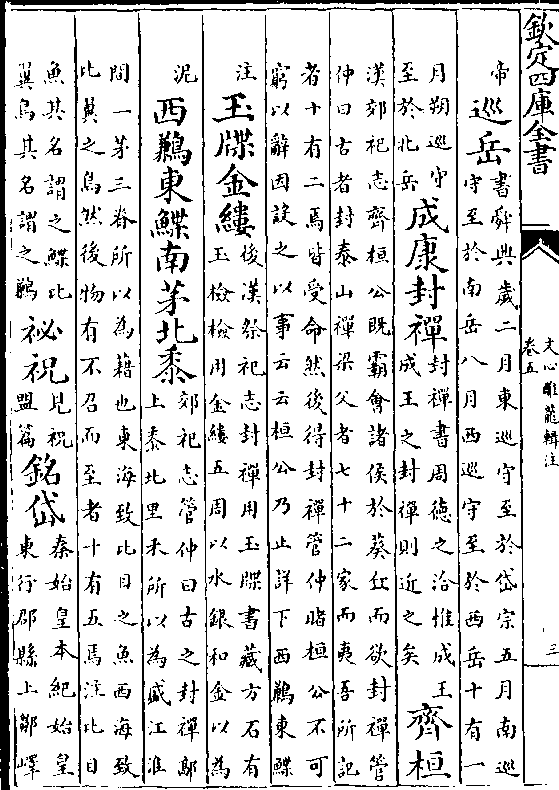 欽定四庫全書
文心雕龍輯注
卷五
三
帝巡岳
書舜典歲二月東巡守至於岱宗五月南巡
守至於南岳八月西巡守至於西岳十有一
月朔巡守
至於北岳
成康封禪
封禪書周德之洽惟成王
成王之封禪則近之矣
齊桓
漢郊祀志齊桓公既霸會諸侯於葵丘而欲封禪管
仲曰古者封泰山禪梁父者七十二家而夷吾所記
者十有二焉皆受命然後得封禪管仲睹桓公不可
窮以辭因設之以事云云桓公乃止詳下西鶼東鰈
注
玉牒金縷
後漢祭祀志封禪用玉牒書藏方石有
玉檢檢用金縷五周以水銀和金以為
泥
西鶼東鰈南茅北黍
郊祀志管仲曰古之封禪鄗
上黍北里禾所以為盛江淮
間一茅三脊所以為藉也東海致比目之魚西海致
比翼之鳥然後物有不召而至者十有五焉注比目
魚其名謂之鰈比
翼鳥其名謂之鶼
祕祝
見祝
盟篇
銘岱
秦始皇本紀始皇
東行郡縣上鄒嶧